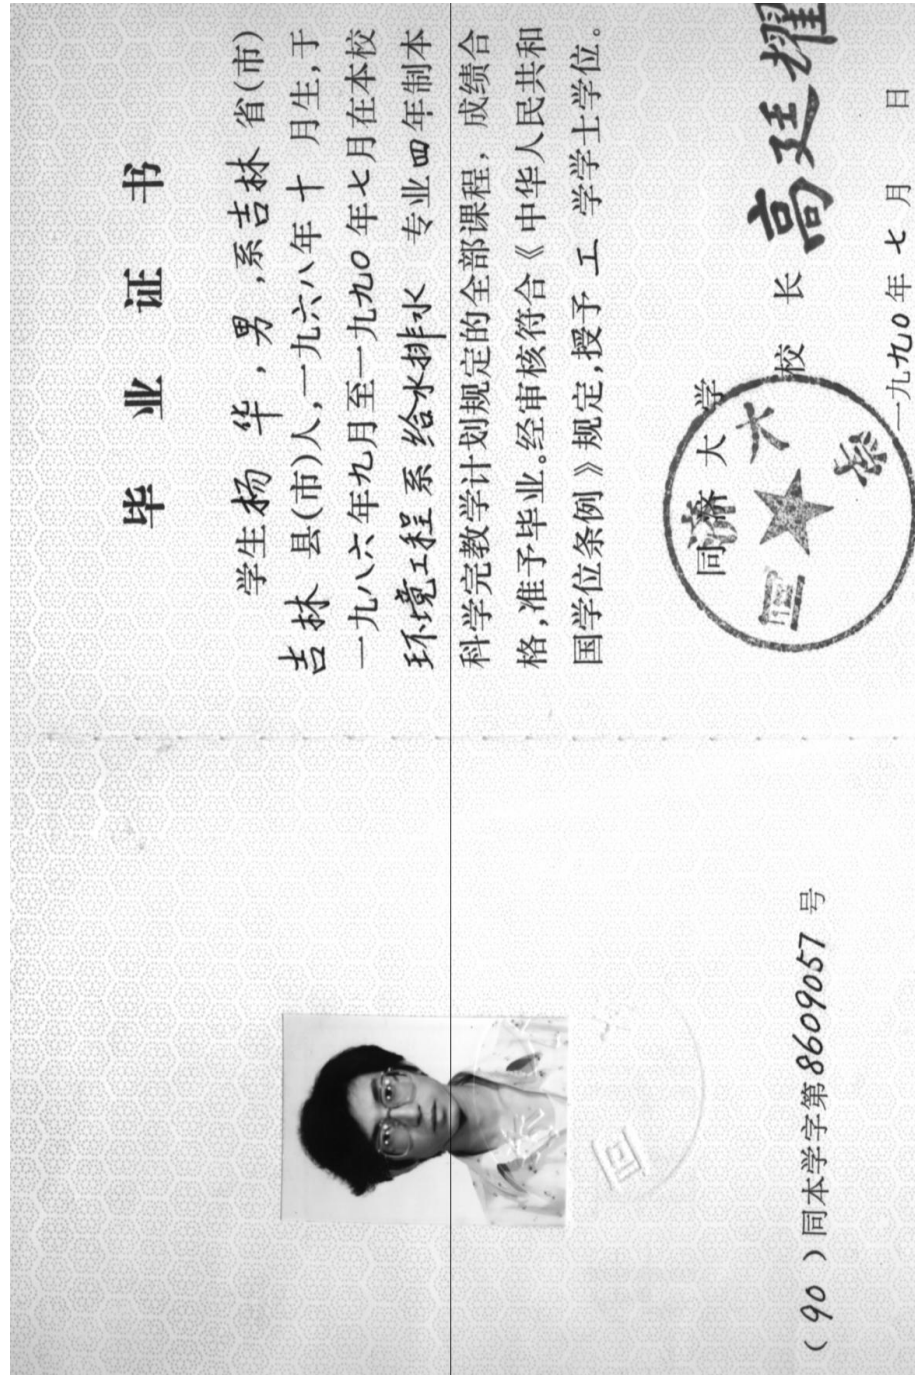 毕业证书
学生杨华，男，系吉林省(市)
吉林县(市)人，一九六八年十月生，于
一九八六年九月至一九九〇年七月在本校
环境工程系给水排水专业四年制本
科学完教学计划规定的全部课程，成绩合
格，准予毕业。经审核符合《中华人民共和
国学位条例》规定，授予工学学士学位。
同济大学
校长 高廷耀
一九九〇年七月 日
(90)同本学字第8609057号